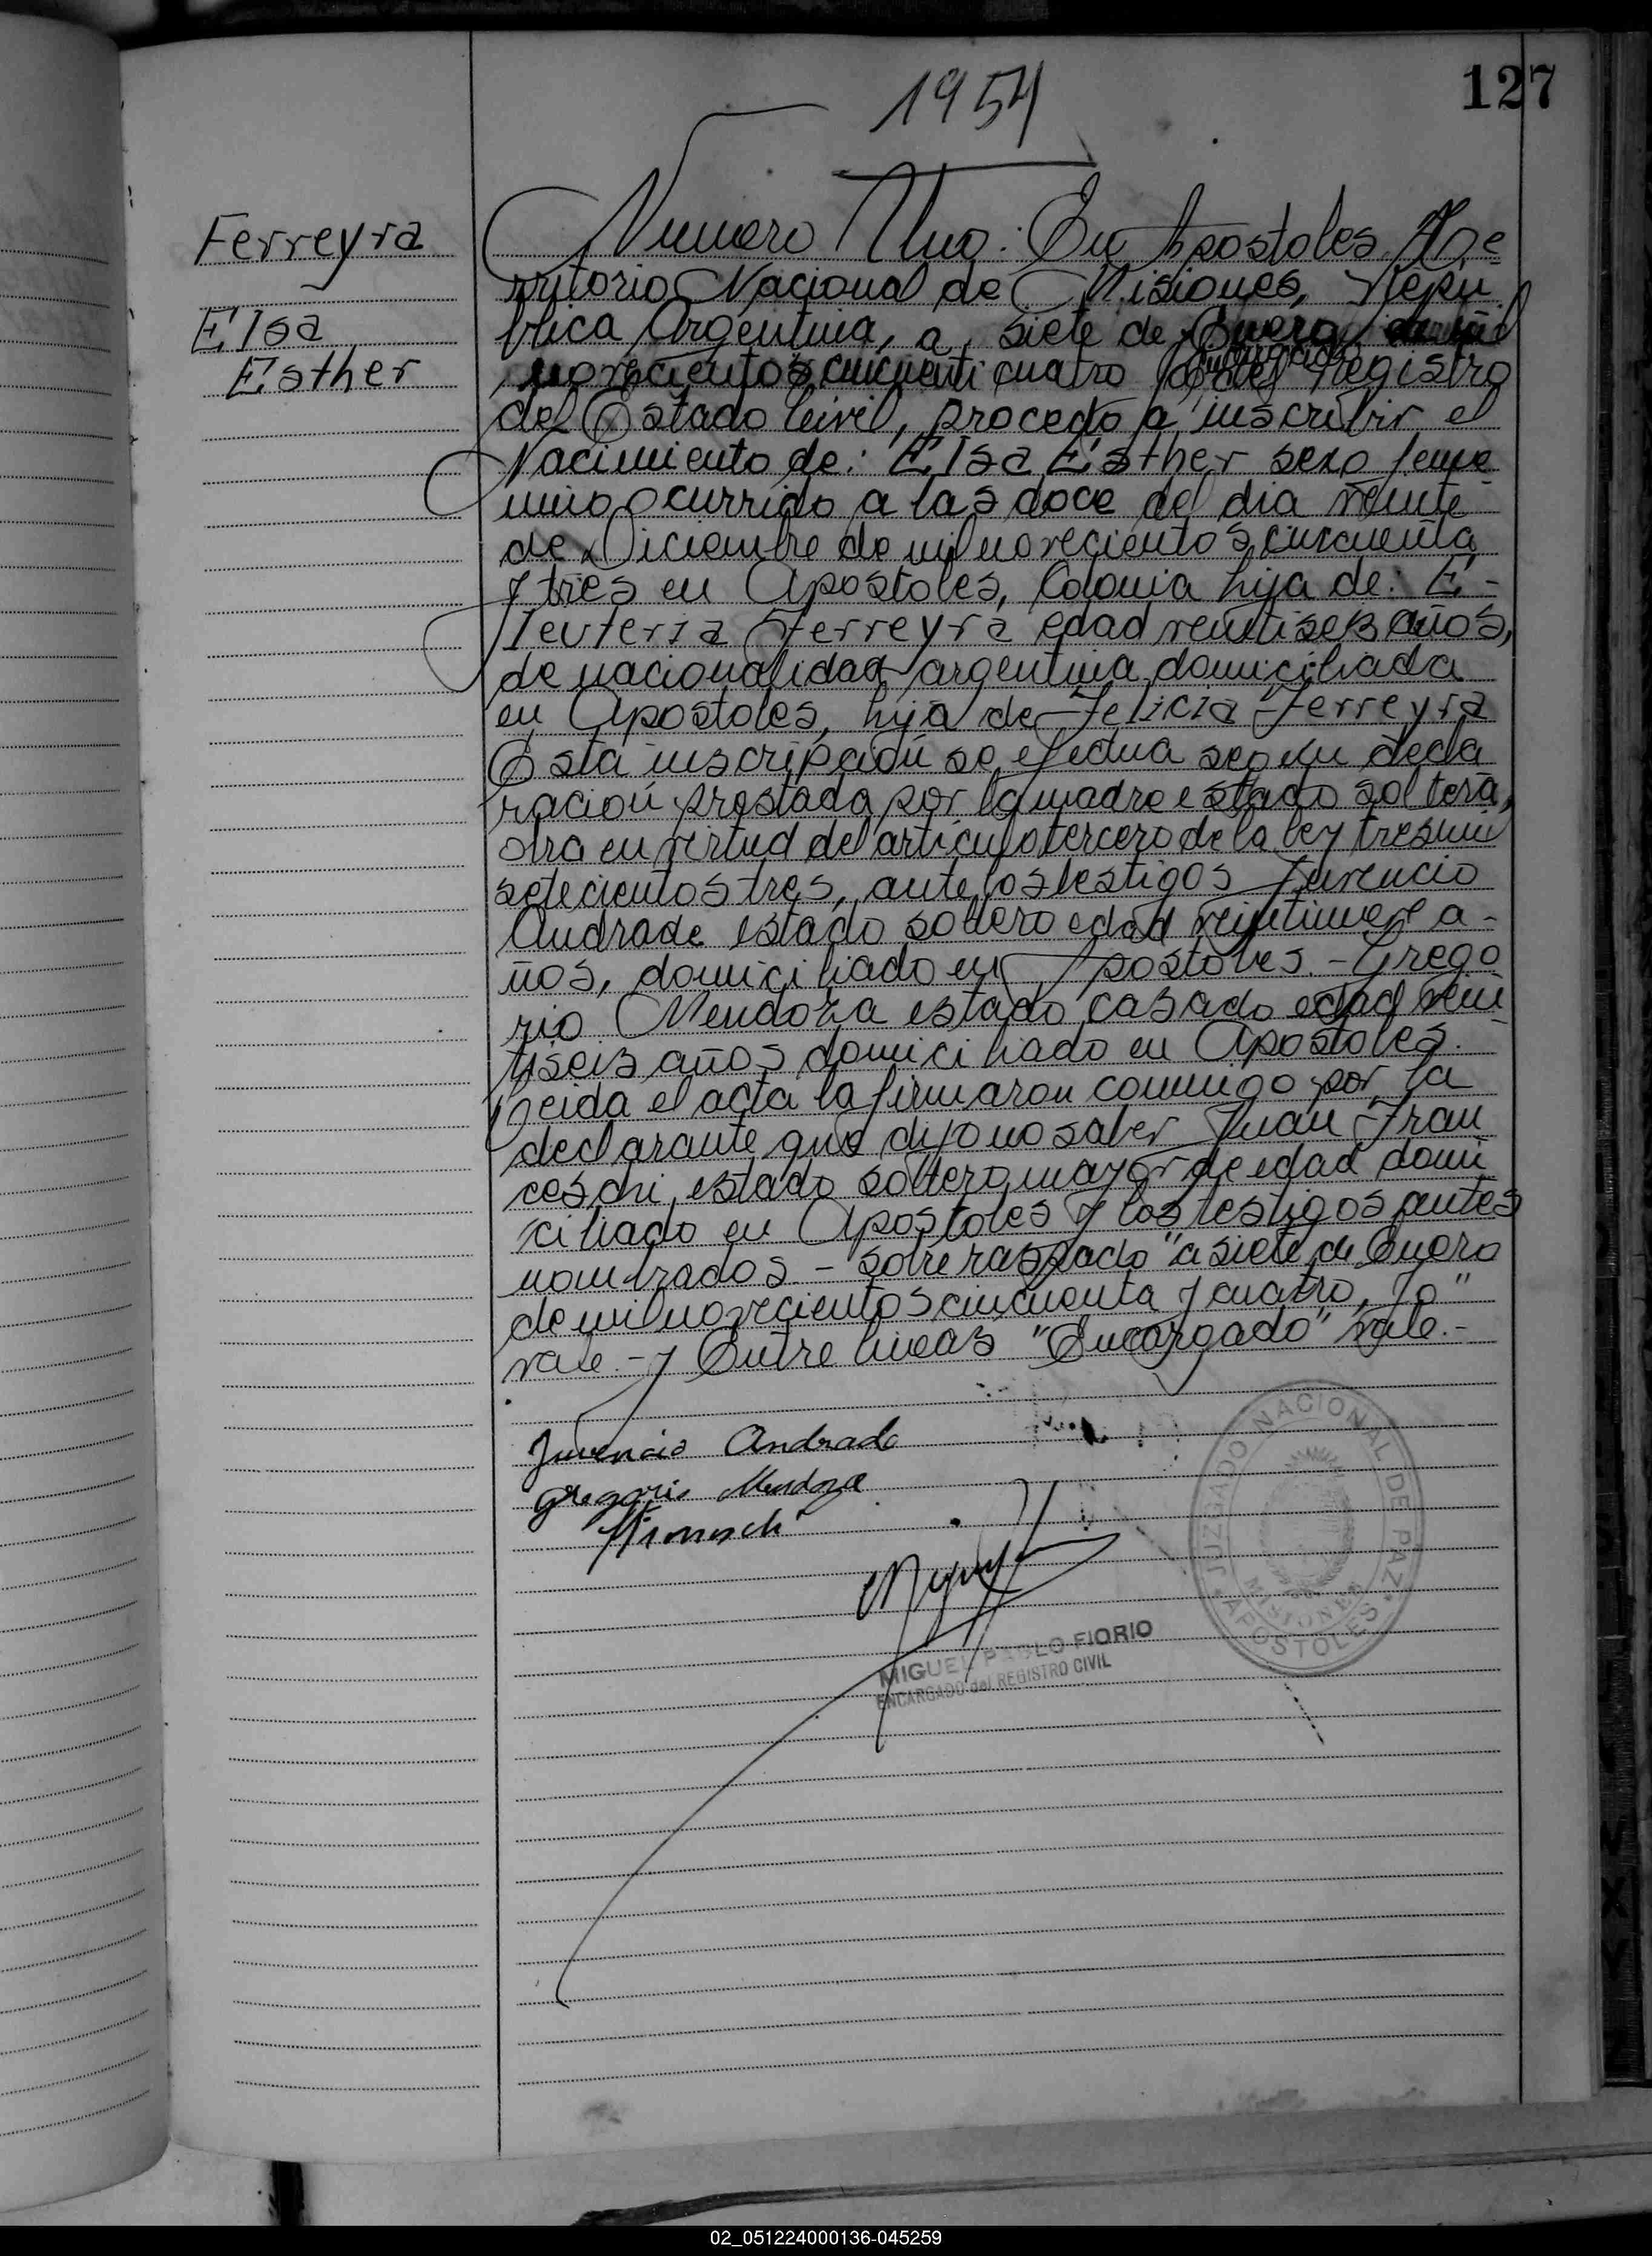 1954
127
Ferreyra
Elsa
Esther
Numero Uno: En Apostoles Te-
rritorio Nacional de Misiones, Repú
blica Argentina, a siete de Enero de mil
novecientos cincuenti cuatro yo Encargado del Registro
del Estado Civil, procedo a inscribir el
Nacimiento de: Elsa Esther sexo feme
nino ocurrido a las doce del dia veinte
de Diciembre de mil novecientos cincuenta
y tres en Apostoles, Colonia hija de: E-
leuteria Ferreyra edad veintiseis años,
de nacionalidad argentina domiciliada
en Apostoles, hija de Felicia Ferreyra
Esta inscripción se efectua segun decla
ración prestada por la madre estado soltera,
obra en virtud del artículo tercero de la ley tres mil
setecientos tres, ante los testigos Juvencio
Andrade estado soltero edad veintinueve a-
ños, domiciliado en Apostoles. - Grego
rio Mendoza estado casado edad vein
tiseis años domiciliado en Apostoles.
Leida el acta la firmaron conmigo por la
declarante que dijo no saber Juan Fran
ceschi, estado soltero mayor de edad domi
ciliado en Apostoles y los testigos antes
nombrados. - Sobre raspado "a siete de Enero
de mil novecientos cincuenta y cuatro, yo"
vale. - y Entre lineas "Encargado" vale. -
Juvencio Andrade
Gregorio Mendoza
MIGUEL PABLO FIORIO
ENCARGADO del REGISTRO CIVIL
JUZGADO NACIONAL DE PAZ
MISIONES
APOSTOLES
02_051224000136-045259